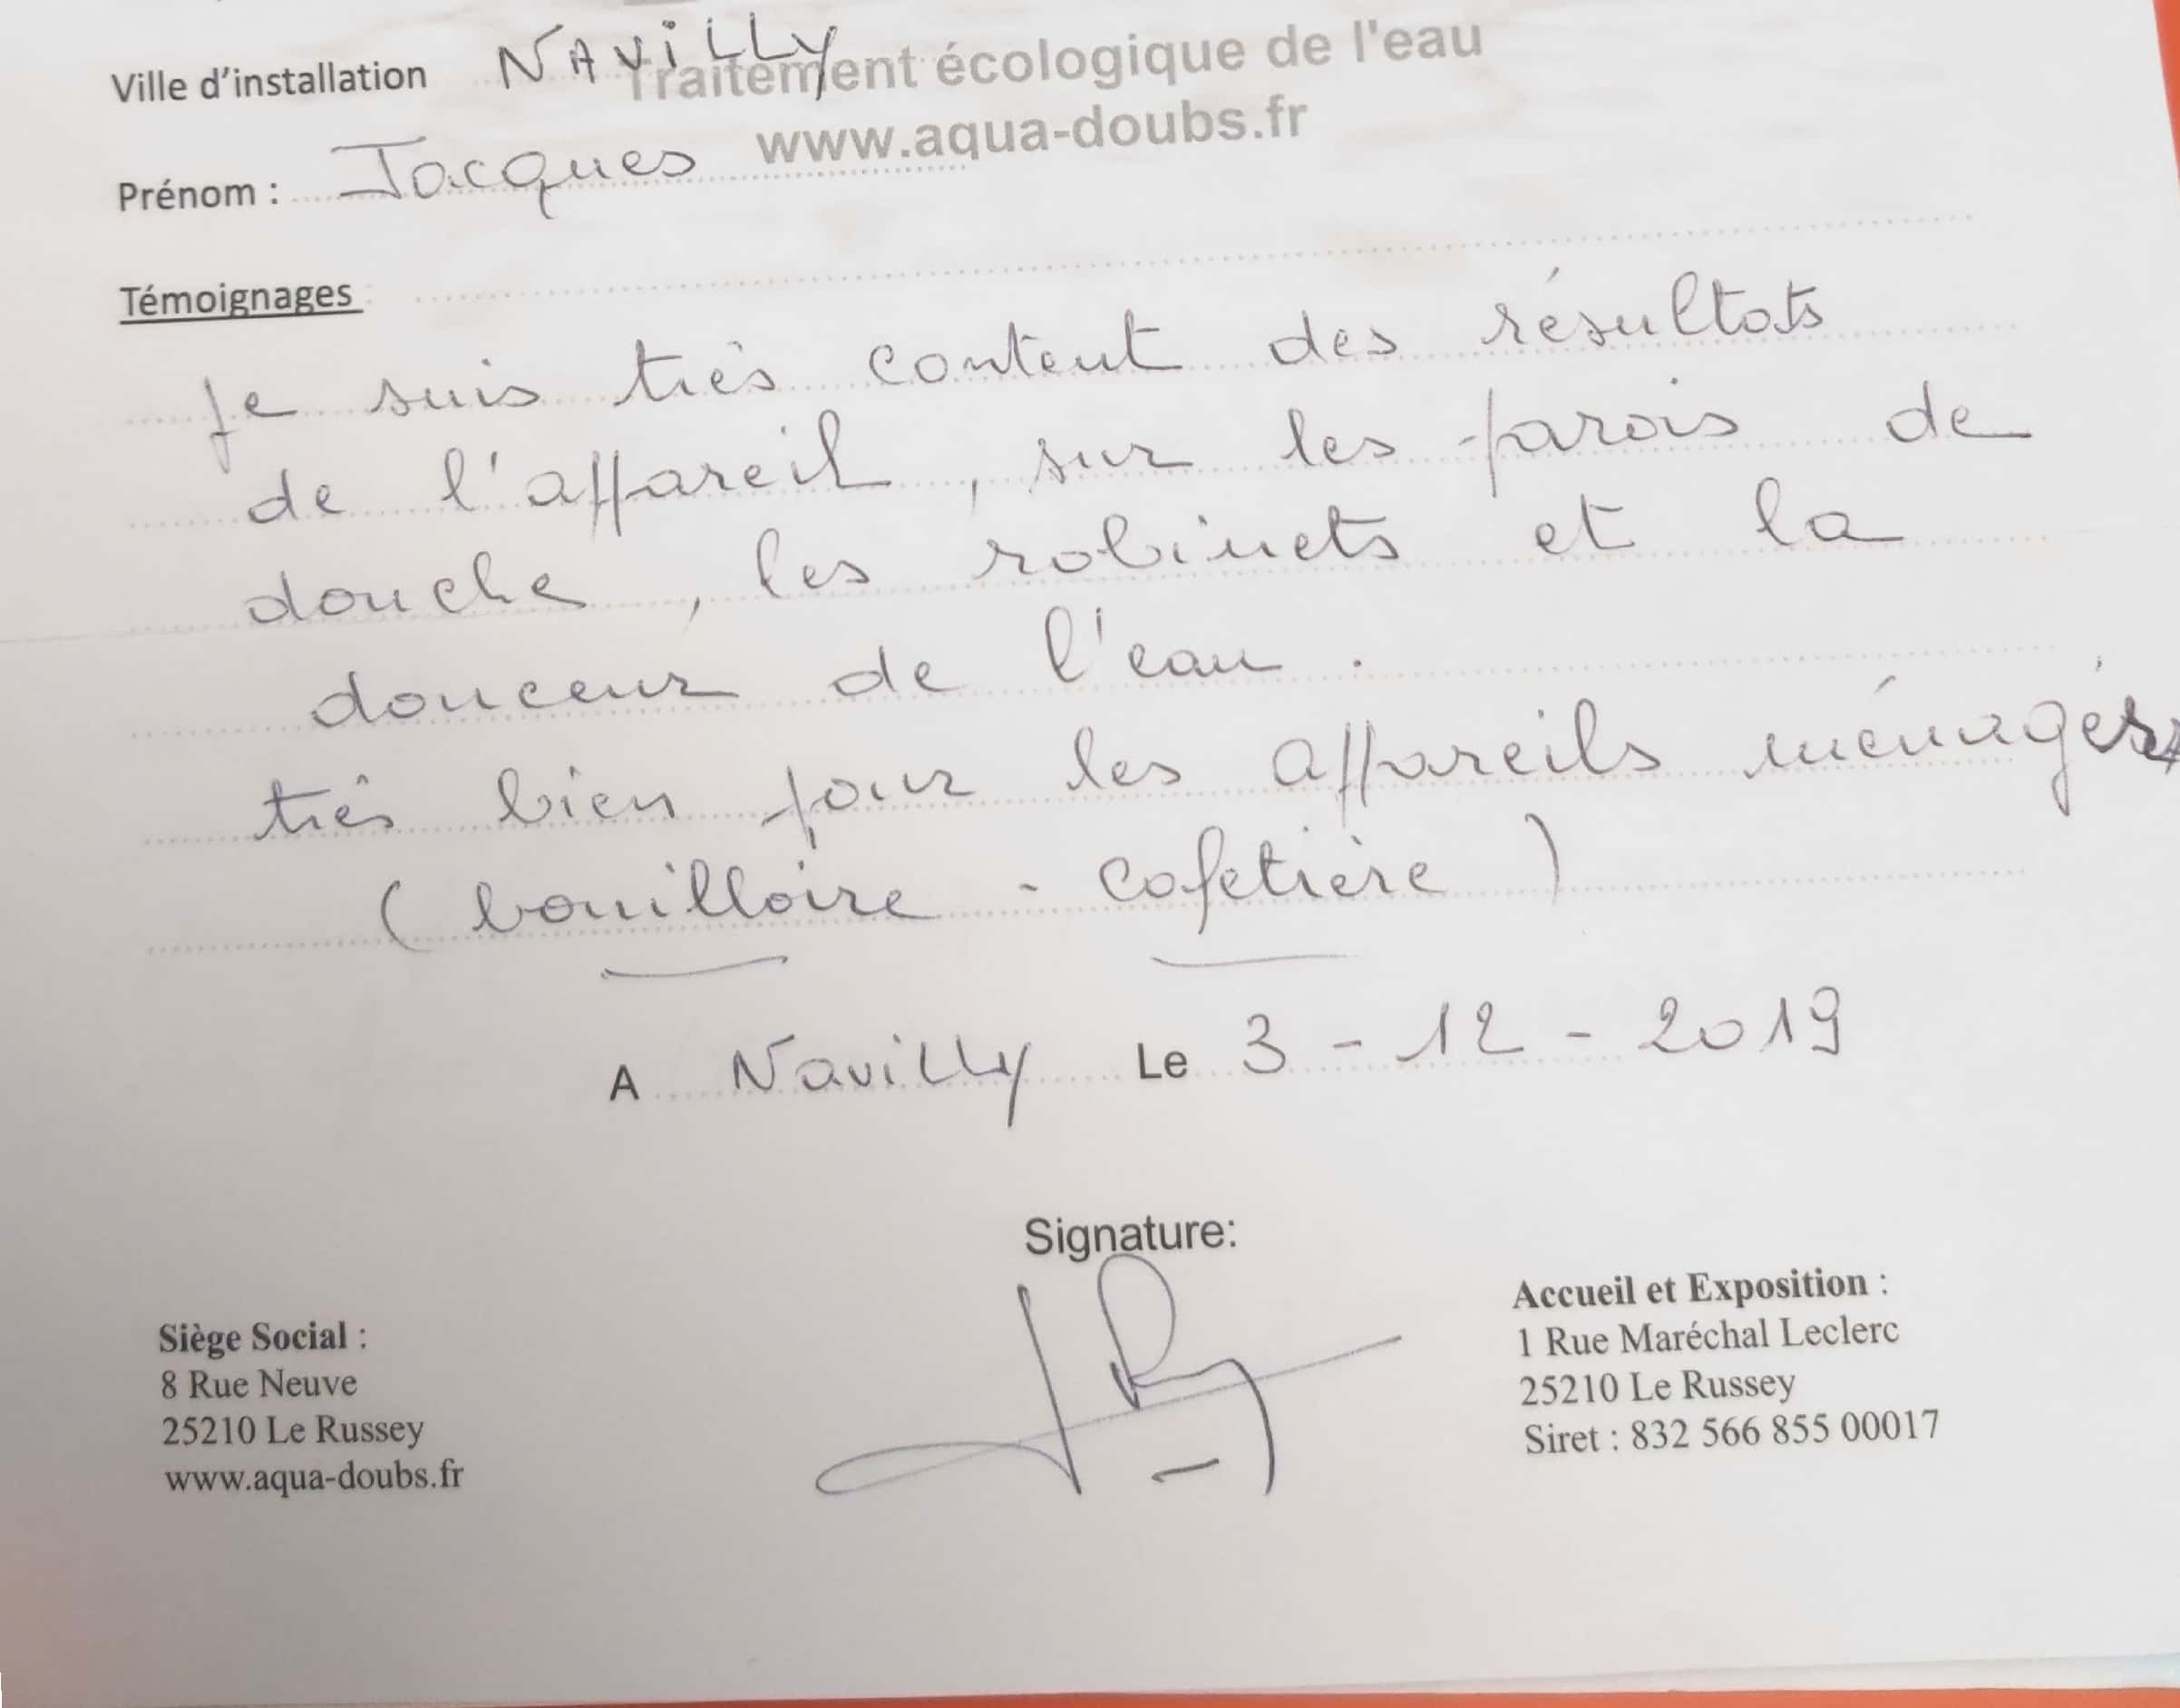 Traitement écologique de l'eau
Ville d'installation NAViLLy
www.aqua-doubs.fr
Prénom : Jacques
Témoignages
Je suis très content des résultats
de l'appareil, sur les parois de
douche, les robinets et la
douceur de l'eau.
très bien pour les appareils ménagés
(bouilloire - cafetière)
A Navilly Le 3-12-2019
Signature:
Siège Social :
8 Rue Neuve
25210 Le Russey
www.aqua-doubs.fr
Accueil et Exposition :
1 Rue Maréchal Leclerc
25210 Le Russey
Siret : 832 566 855 00017